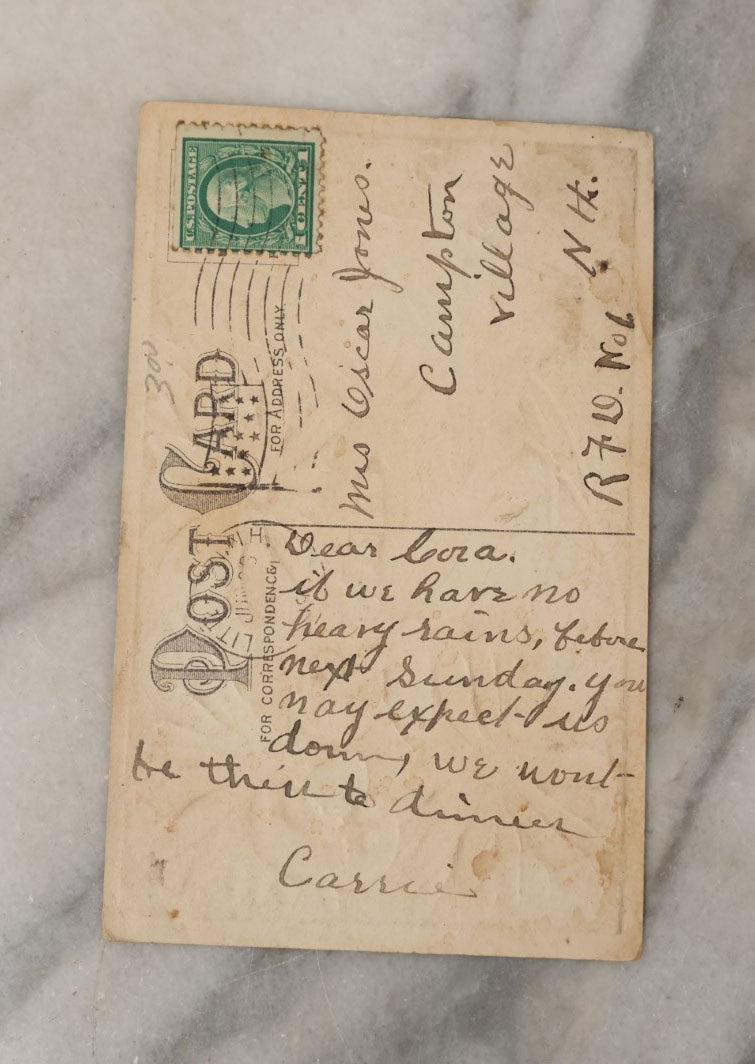 POST CARD
FOR CORRESPONDENCE
FOR ADDRESS ONLY
U.S. POSTAGE
1 CENT 1
300
Mrs Oscar Jones.
Campton
Village
N H.
R. F. D. No 1
Dear Cora.
if we have no
heavy rains, before
next Sunday. you
may expect us
down, we wont
be there to dinner
Carrie